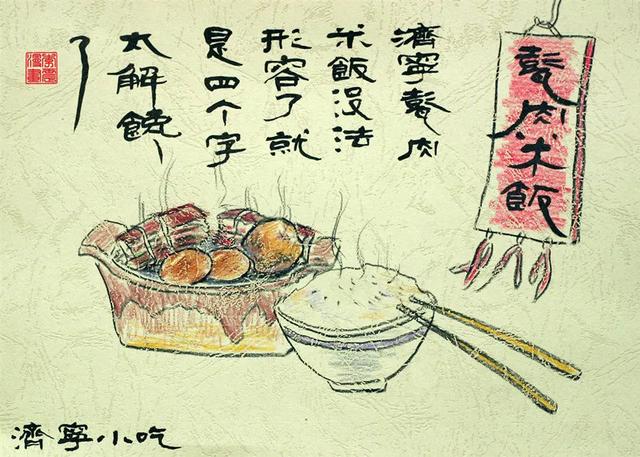 甏肉米飯
濟寧甏肉
米飯没法
形容了就
是四个字
太解饞、
了
濟寧小吃